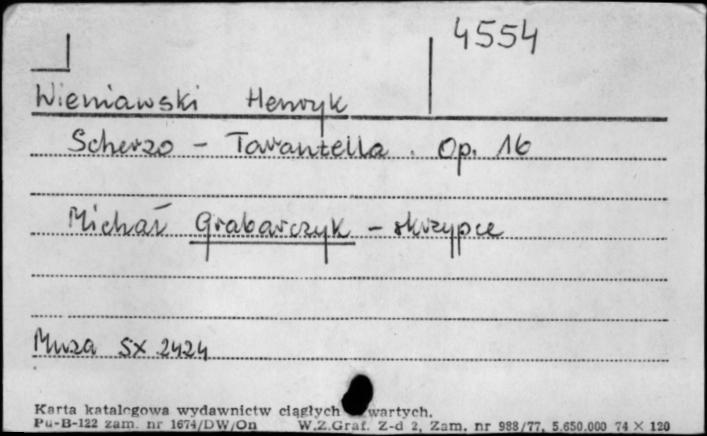 4554
Wieniawski Henryk
Scherzo - Tarantella. Op. 16
Michał Grabarczyk - skrzypce
Muza SX 2424
Karta katalogowa wydawnictw ciągłych wartych.
Pu-B-122 zam. nr 1674/DW/On W.Z.Graf. Z-d 2, Zam. nr 988/77, 5.650.000 74 × 120